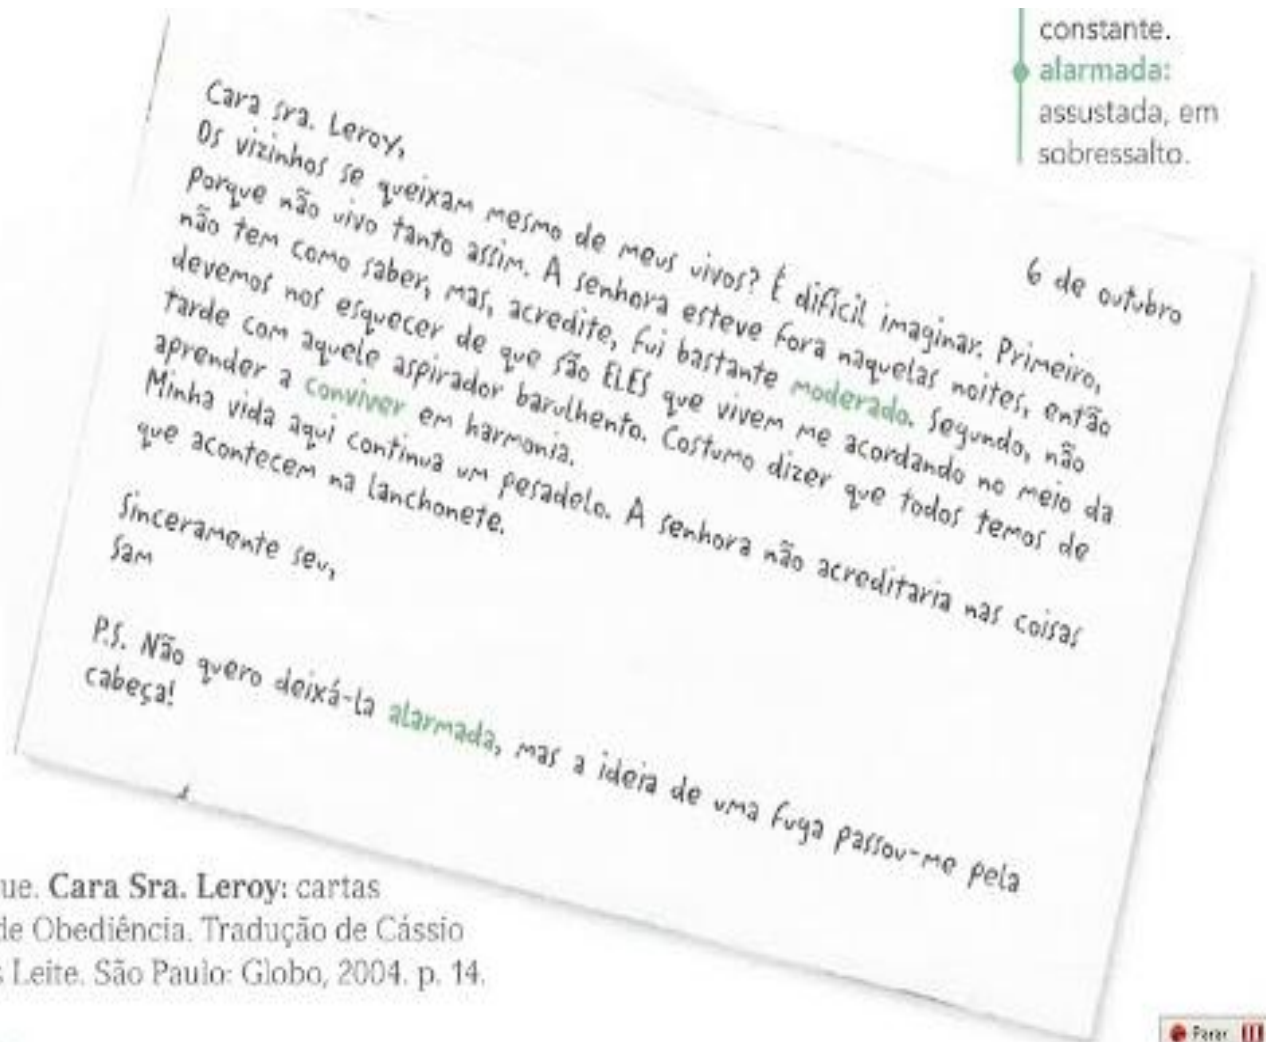 constante.
alarmada:
assustada, em
sobressalto.
6 de outubro
Cara sra. Leroy,
Os vizinhos se queixam mesmo de meus uivos? É difícil imaginar. Primeiro,
porque não uivo tanto assim. A senhora esteve fora naquelas noites, então
não tem como saber, mas, acredite, fui bastante moderado. Segundo, não
devemos nos esquecer de que são ELES que vivem me acordando no meio da
tarde com aquele aspirador barulhento. Costumo dizer que todos temos de
aprender a conviver em harmonia.
Minha vida aqui continua um pesadelo. A senhora não acreditaria nas coisas
que acontecem na lanchonete.
Sinceramente seu,
Sam
P.S. Não quero deixá-la alarmada, mas a ideia de uma fuga passou-me pela
cabeça!
ue. Cara Sra. Leroy: cartas
de Obediência. Tradução de Cássio
s Leite. São Paulo: Globo, 2004. p. 14.
Parar